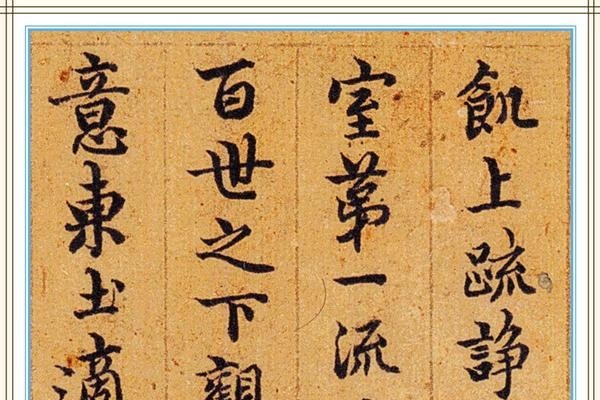 飢上疏諍
室苐一流
百世之下觀
意東土滴